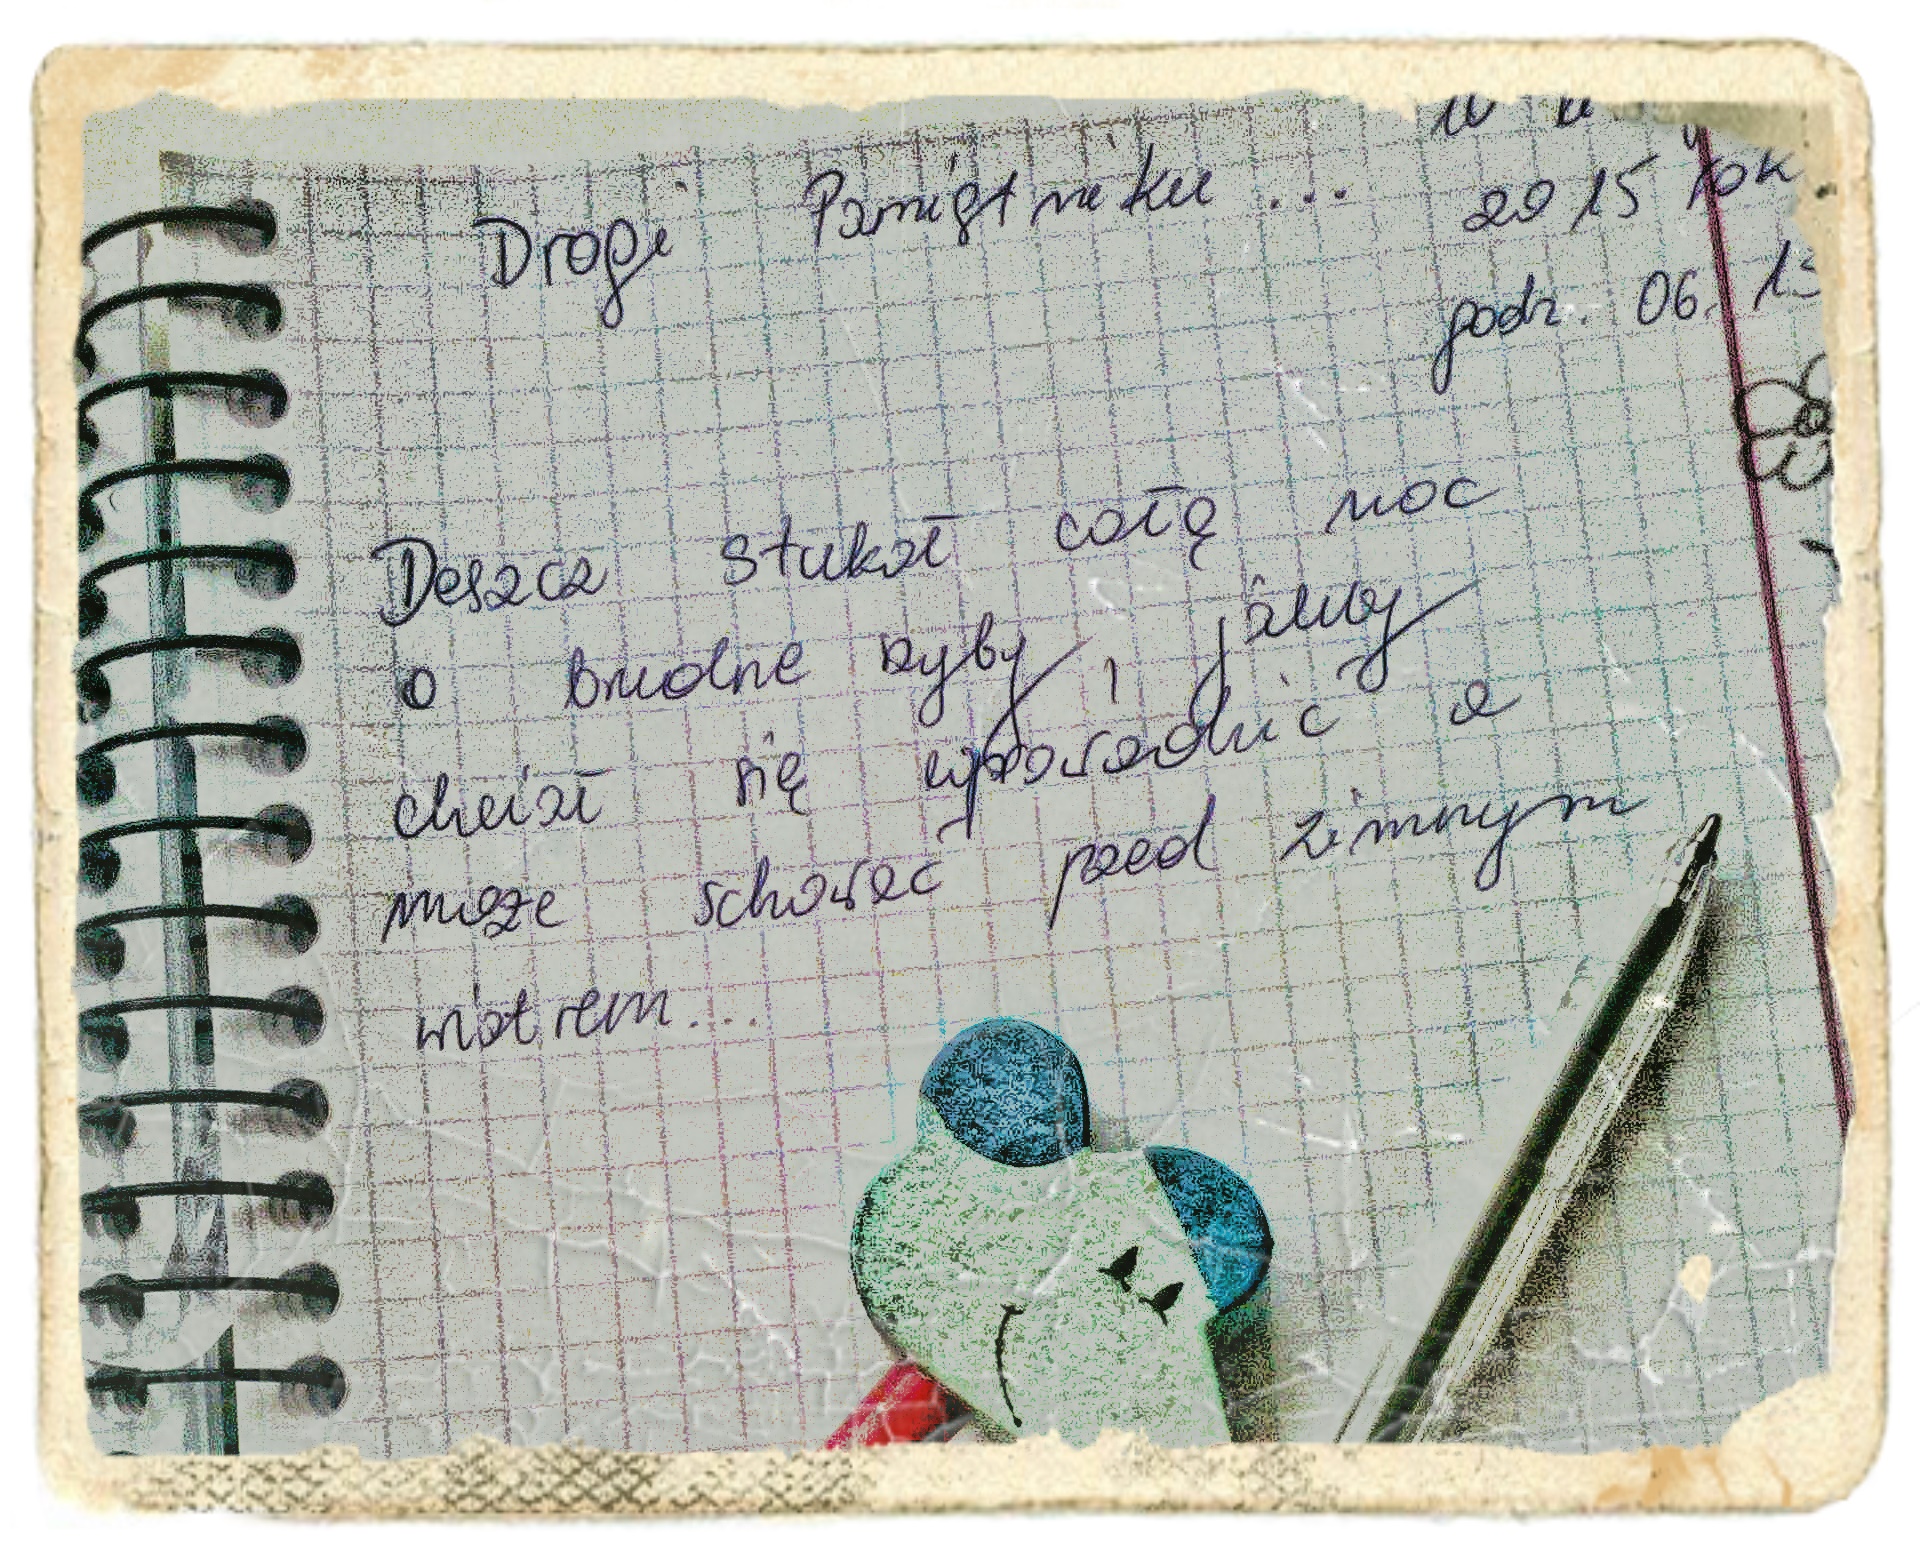 Drogi Pamiętniku ...
2015 rok
godz. 06. 13
Deszcz stukał całą noc
o brudne szyby i jakby
chciał się wprowadzić a
może schować przed zimnym
wiatrem...